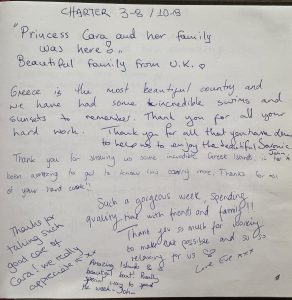 CHARTER 3-8 / 10-8
"Princess Cara and her family
was here!
Beautiful family from U.K.
Greece is the most beautiful country and
we have had some incredible swims and
sunsets to remember. Thank you for all your
hard work. Thank you for all that you have done
to help us to enjoy the beautiful
John
Thank you for showing us some incredible Greek Islands, it has
been amazing to get to know this more. Thanks for all
of your hard work!!
Such a gorgeous week, spending
quality time with friends and family!!!
Thank you so much for working
to make it possible and so so
relaxing for us
Love Eve xxx
Thanks for
taking such
good care of
Cara! We really
appreciate it xx
Amazing Islands & a
beautiful boat. Really
special way to spend
the week - John